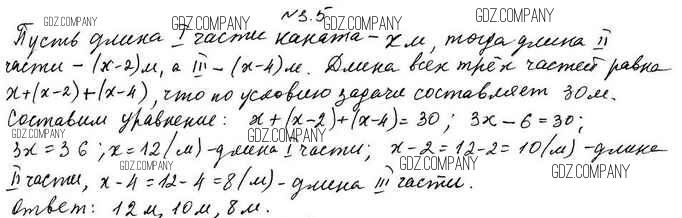 GDZ.COMPANY
№3.5
GDZ.COMPANY
GDZ.COMPANY
Пусть длина I части каната – x м, тогда длина II
части – (x-2)м, а III – (x-4)м. Длина всех трёх частей равна
x+(x-2)+(x-4), что по условию задачи составляет 30м.
GDZ.COMPANY
GDZ.COMPANY
Составим уравнение: x+(x-2)+(x-4)=30; 3x-6=30;
GDZ.COMPANY
3x=36; x=12(м)-длина I части; x-2=12-2=10(м)-длина
GDZ.COMPANY
GDZ.COMPANY
II части, x-4=12-4=8(м)-длина III части.
Ответ: 12м, 10м, 8м.
GDZ.COMPANY